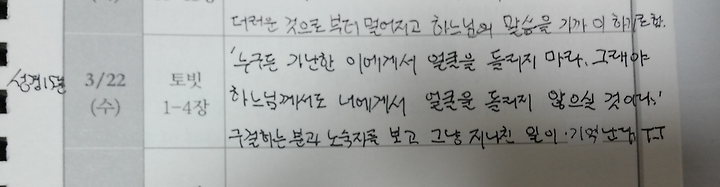 더러운 것으로부터 멀어지고 하느님의 말씀을 가까이 하기로함.
성경15분 3/22 (수) 토빗 1-4장
'누구든 가난한 이에게서 얼굴을 돌리지 마라. 그래야
하느님께서도 너에게서 얼굴을 돌리지 않으실 것이다.'
구걸하는 분과 노숙자를 보고 그냥 지나친 일이 기억난다 ㅜㅜ